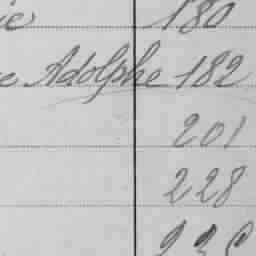 180
Adolphe 182
201
228